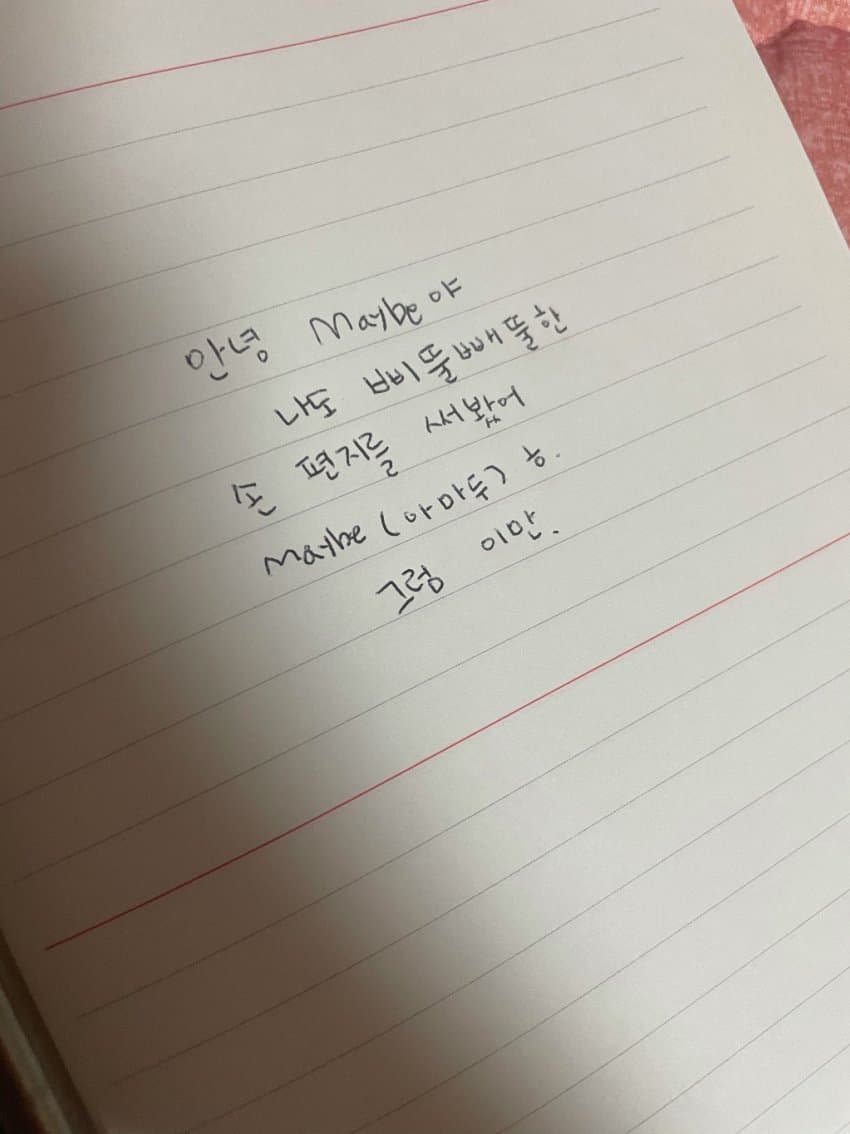 안녕 Maybe야
나도 삐뚤빼뚤한
손 편지를 써봤어
Maybe (아마두) ㅎ.
그럼 이만.